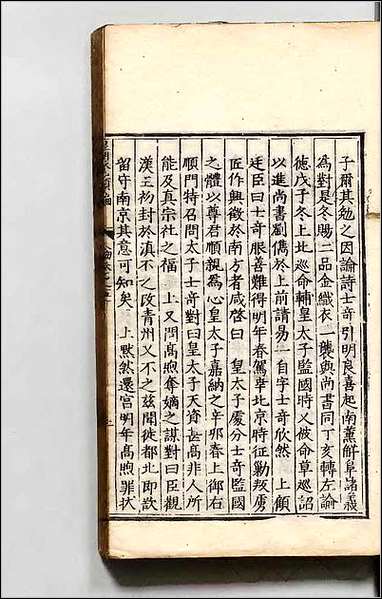 子爾其勉之因諭詩士奇引明良喜起南薰解阜諸義
為對是冬賜二品金織衣一襲與尚書同丁亥轉左諭
德戊子冬上北巡命輔皇太子監國時又被命草巡詔
以進尚書劉儁於上前請易一二自字士奇欣然 上顧
廷臣曰士奇服善難得明年春駕幸北京時征勦叛虜
匠作興徵於南方者咸啓曰 皇太子處分士奇監國
之體以尊君順親為心皇太子嘉納之辛卯春上御右
順門特召問太子士奇對曰皇太子天資甚高非人所
能及真宗社之福 上又問高煦奪嫡之謀對曰臣觀
漢王初封於滇不之改青州又不之兹聞徙都北即欲
留守南京其意可知矣 上默然還宮明年高煦罪狀